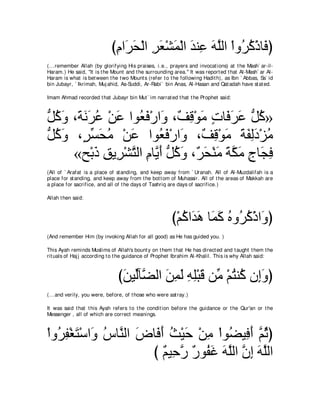 (فَاذْكُرُواْ اللَّهَ عِندَ الْمَشْعَرِ الْحَرَامِ)
(...remember Allah (by glorifying His praises, i.e., prayers and invocations) at the Mash`ar-il-Haram.) He said, "It is the Mount and the surrounding area." It was reported that Al-Mash`ar Al-Haram is what is between the two Mounts (refer to the following Hadith), as Ibn `Abbas, Sa`id bin Jubayr, `Ikrimah, Mujahid, As-Suddi, Ar-Rabi` bin Anas, Al-Hasan and Qatadah have stated.
Imam Ahmad recorded that Jubayr bin Mut`im narrated that the Prophet said:
«كُلُّ عَرَفَاتٍ مَوْقِفٌ، وَارْفَعُوا عَنْ عُرَنَةَ، وَكُلُّ
مُزْدَلِفَةَ مَوْقِفٌ، وَارْفَعُوا عَنْ مُحَسِّرٍ، وَكُلُّ
فِجَاجِ مَكَّةَ مَنْحَرٌ، وَكُلُّ أَيَّامِ التَّشْرِيقِ ذَبْح»
(All of `Arafat is a place of standing, and keep away from `Uranah. All of Al-Muzdalifah is a place for standing, and keep away from the bottom of Muhassir. All of the areas of Makkah are a place for sacrifice, and all of the days of Tashriq are days of sacrifice.)
Allah then said:
(وَاذْكُرُوهُ كَمَا هَدَاكُمْ)
(And remember Him (by invoking Allah for all good) as He has guided you.)
This Ayah reminds Muslims of Allah's bounty on them that He has directed and taught them the rituals of Hajj according to the guidance of Prophet Ibrahim Al-Khalil. This is why Allah said:
(وَإِن كُنتُمْ مِّن قَبْلِهِ لَمِنَ الضَّآلِّينَ)
(...and verily, you were, before, of those who were astray.)
It was said that this Ayah refers to the condition before the guidance or the Qur'an or the Messenger , all of which are correct meanings.
(ثُمَّ أَفِيضُواْ مِنْ حَيْثُ أَفَاضَ النَّاسُ وَاسْتَغْفِرُواْ
اللَّهَ إِنَّ اللَّهَ غَفُورٌ رَّحِيمٌ )